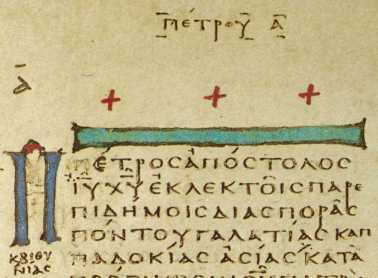 ΠΕΤΡΟΥ Α
Α
ΠΕΤΡΟΣ ΑΠΟΣΤΟΛΟΣ
ΙΥ ΧΥ ΕΚΛΕΚΤΟΙΣ ΠΑΡΕ
ΠΙΔΗΜΟΙΣ ΔΙΑΣΠΟΡΑΣ
ΠΟΝΤΟΥ ΓΑΛΑΤΙΑΣ ΚΑΠ
ΠΑΔΟΚΙΑΣ ΑΣΙΑΣ ΚΑΤΑ
Κ ΒΙΘΥ
ΝΙΑΣ